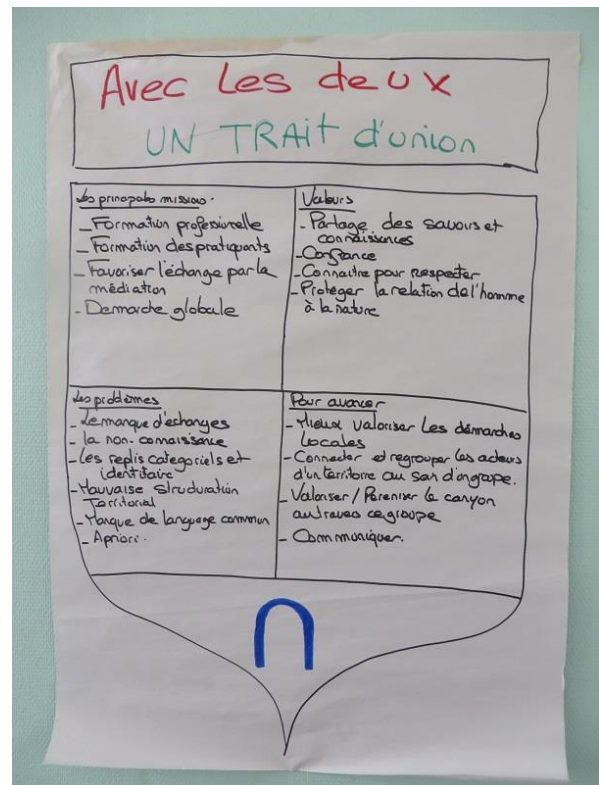 Avec les deux
UN TRAit d'union
Les principales missions.
- Formation professionelle
- Formation des pratiquants
- Favoriser l'échange par la
médiation
- Demarche globale
Valeurs
- Partage des savoirs et
connaissances
- Confiance
- Connaitre pour respecter
- Protéger la relation de l'homme
à la nature
Les problèmes
- Le manque d'échanges
- la non-connaissance
- Les replis categoriels et
identitaire
- Mauvaise structuration
Territorial
- Manque de language commun
- Apriori.
Pour avancer
- Mieux valoriser les démarches
Locales
- Connecter et regrouper les acteurs
d'un territoire au sein d'un groupe.
- Valoriser / Pereniser le canyon
au travers ce groupe
- Communiquer.